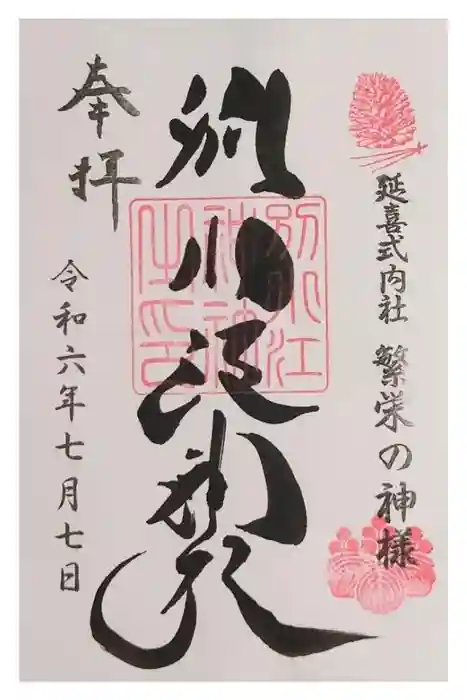 延喜式内社 繁栄の神様
別小江神社
別小江
奉拝
令和六年七月七日